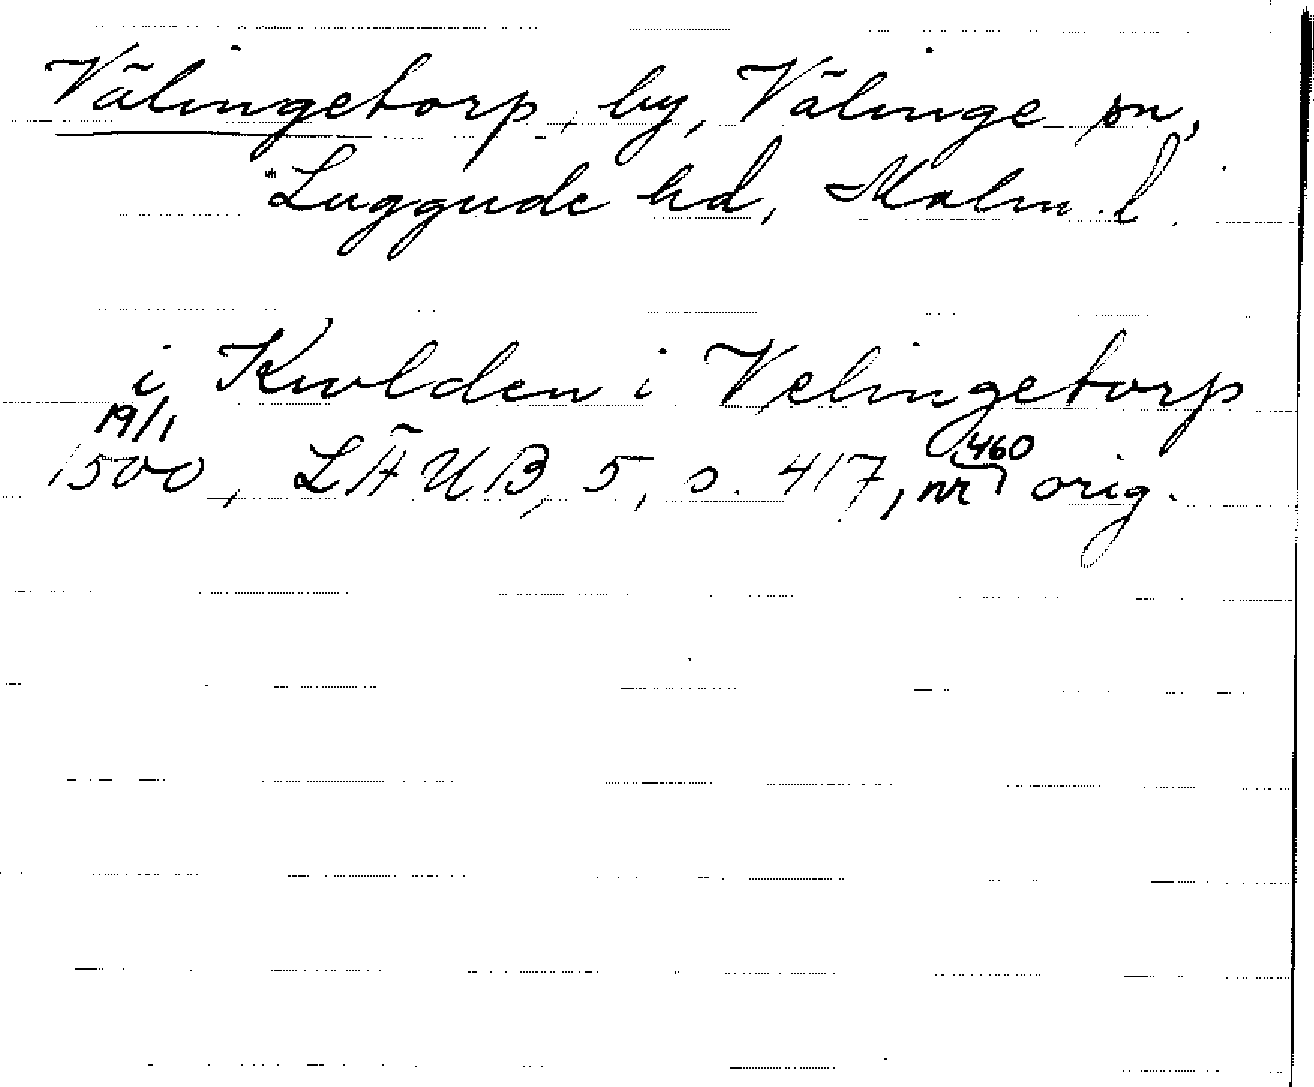 Välingetorp, by, Välinge sn,
Luggude hd, Malm. l.
i Kwlden i Velingetorp
19/1
1500, LÄUB, 5, s. 417, nr 460 orig.